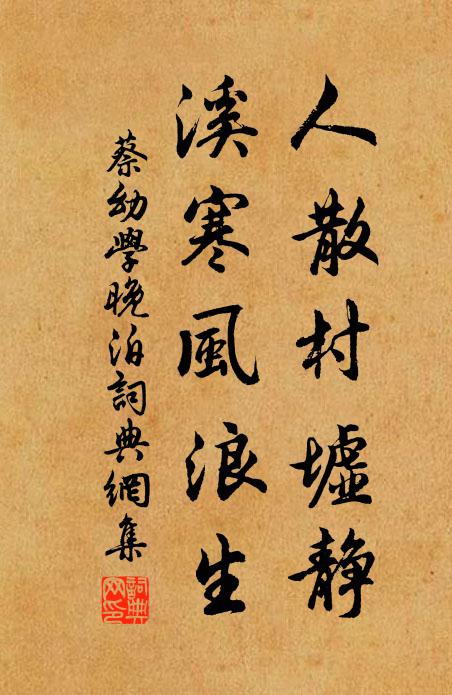 人散村墟静
溪寒風浪生
蔡幼學晚泊詞典網集
詞典網印